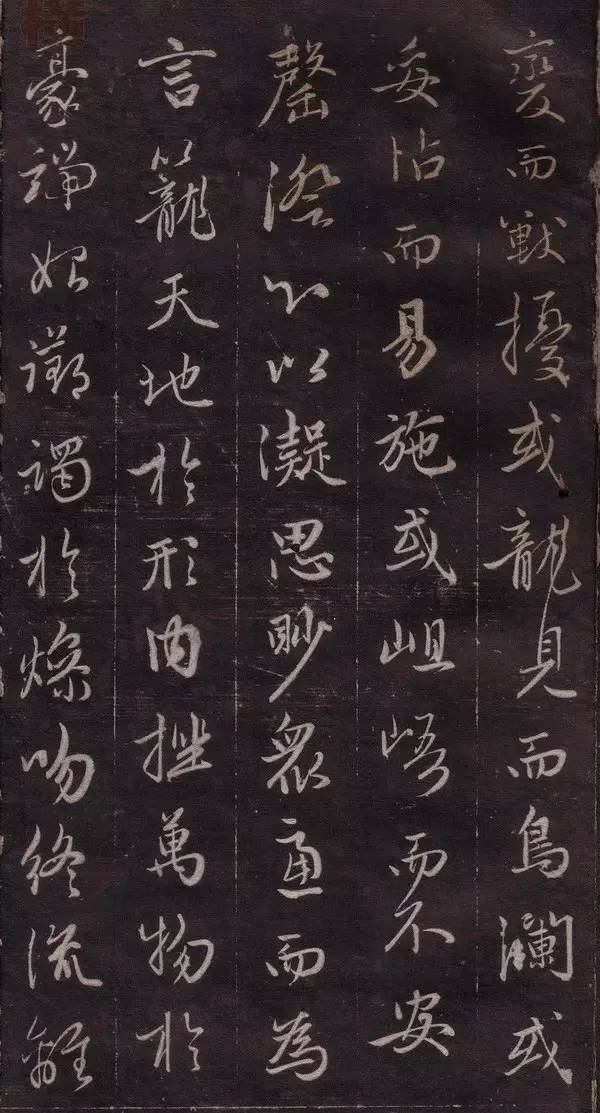 變而獸擾或龍見而鳥瀾或
妥怗而易施或岨峿而不安
罄澄心以凝思眇眾慮而為
言籠天地於形內挫萬物於
豪端始躑躅於燥吻終流離